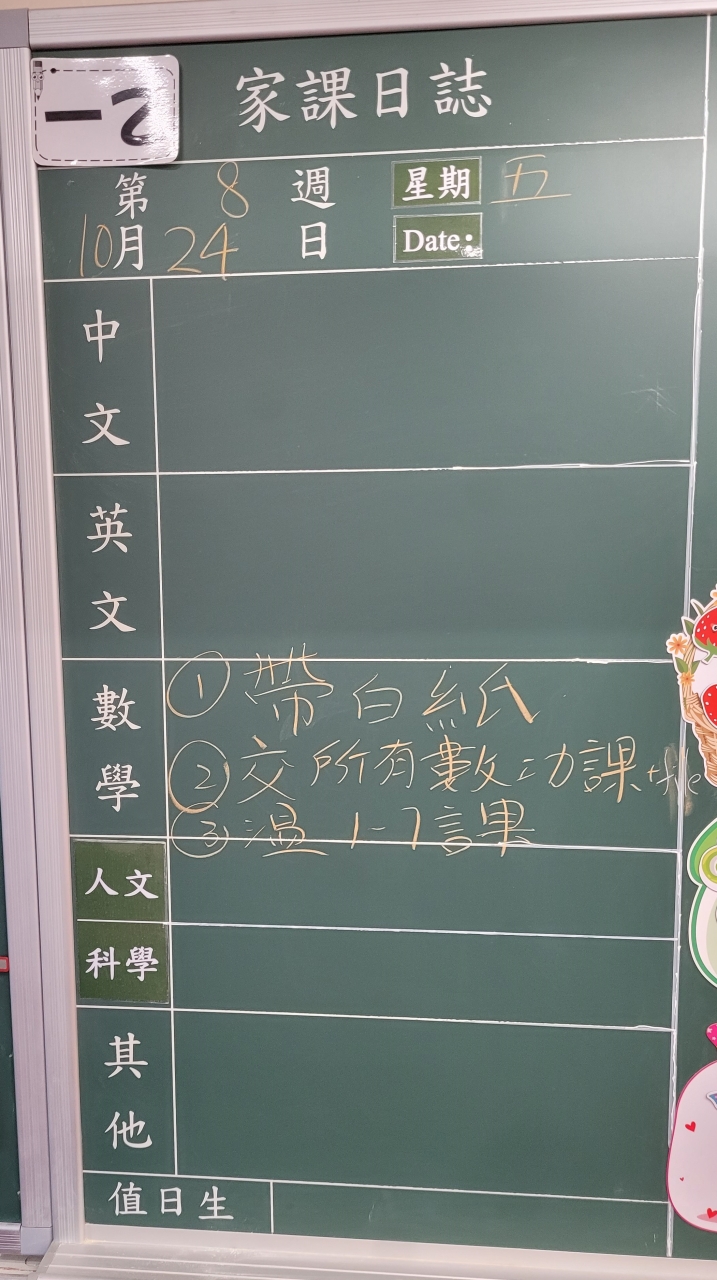 一乙
家課日誌
第 8 週 星期 五
10月 24 日 Date:
中文
英文
數學
① 帶白紙
② 交所有數功課
③ 溫 1-7 課
人文
科學
其他
值日生